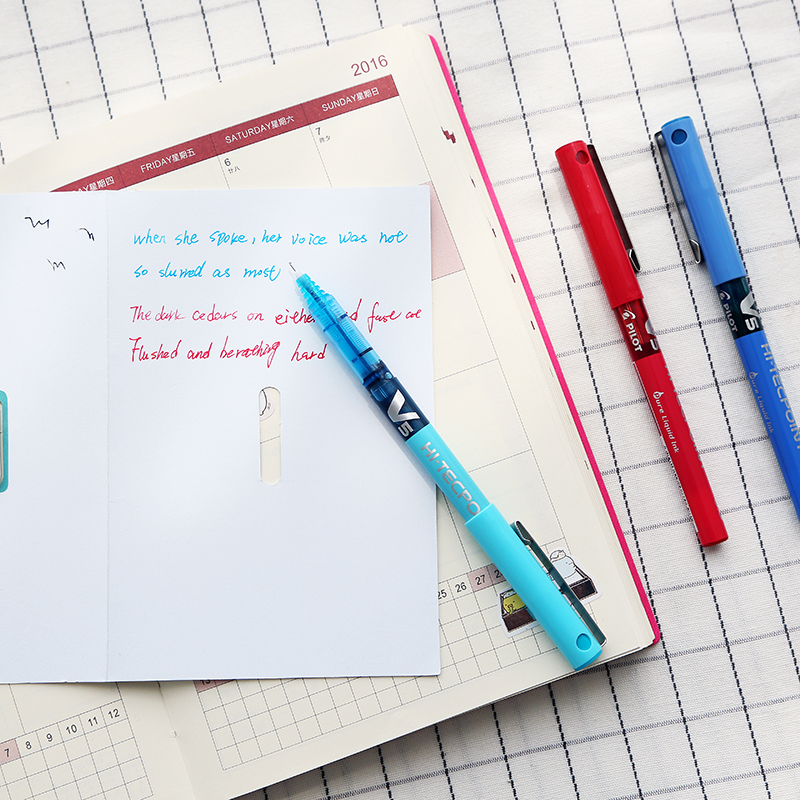 2016
SUNDAY星期日
SATURDAY星期六
FRIDAY星期五
AY星期四
6
廿八
7
除夕
when she spoke, her voice was not
so slurred as most
The dark cedars on either
Flushed and breathing hard
V5
HI-TECPO
PILOT
V5
Pure Liquid Ink
PILOT
V5
HI-TECPOINT
Pure Liquid Ink
25 26 27 28
7 8 9 10 11 12